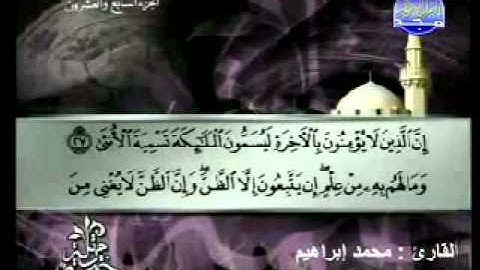 الجزء السابع والعشرون
إِنَّ الَّذِينَ لَا يُؤْمِنُونَ بِالْآخِرَةِ لَيُسَمُّونَ الْمَلَائِكَةَ تَسْمِيَةَ الْأُنثَىٰ ٢٧
وَمَا لَهُم بِهِ مِنْ عِلْمٍ إِن يَتَّبِعُونَ إِلَّا الظَّنَّ وَإِنَّ الظَّنَّ لَا يُغْنِي مِنَ
القارئ : محمد إبراهيم